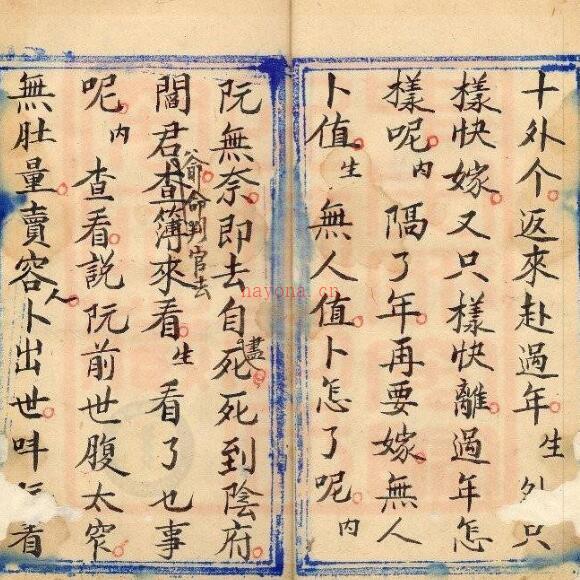 十外个。返來赴過年。生外只
樣快嫁。又只樣快離。過年怎
樣呢。内隔了年。再要嫁。無人
卜值。生無人值。卜怎了呢。内
阮無奈。即去自死盡。死到陰府。
閻君。查簿來看。生看了也事
命判官去
呢。内查看說阮前世腹太窄。
無肚量賣容人。卜出世。叫看
nayona.cn